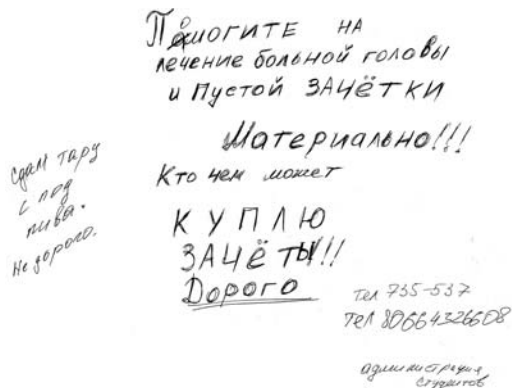 Помогите на
лечение больной головы
и Пустой ЗАЧЁТКИ
Материально!!!
Кто чем может
КУПЛЮ
ЗАЧЁТЫ!!!
Дорого
Сдам тару
с под
пива.
Не дорого.
тел 735-537
тел 80664326608
администрация
студентов